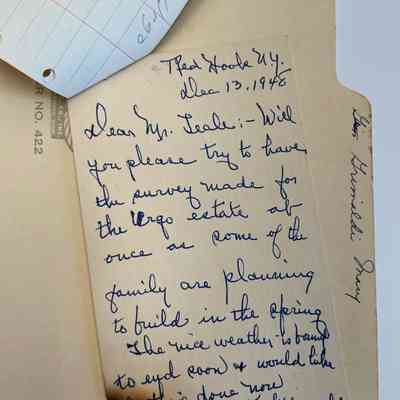 Red Hook N.Y.
Dec 13, 1948
Dear Mr. Teale:- Will
you please try to have
the survey made for
the Urgo estate at
once as some of the
family are planning
to build in the spring
The nice weather is bound
to end soon & would like
this done now
R NO. 422
Grimaldi Mary